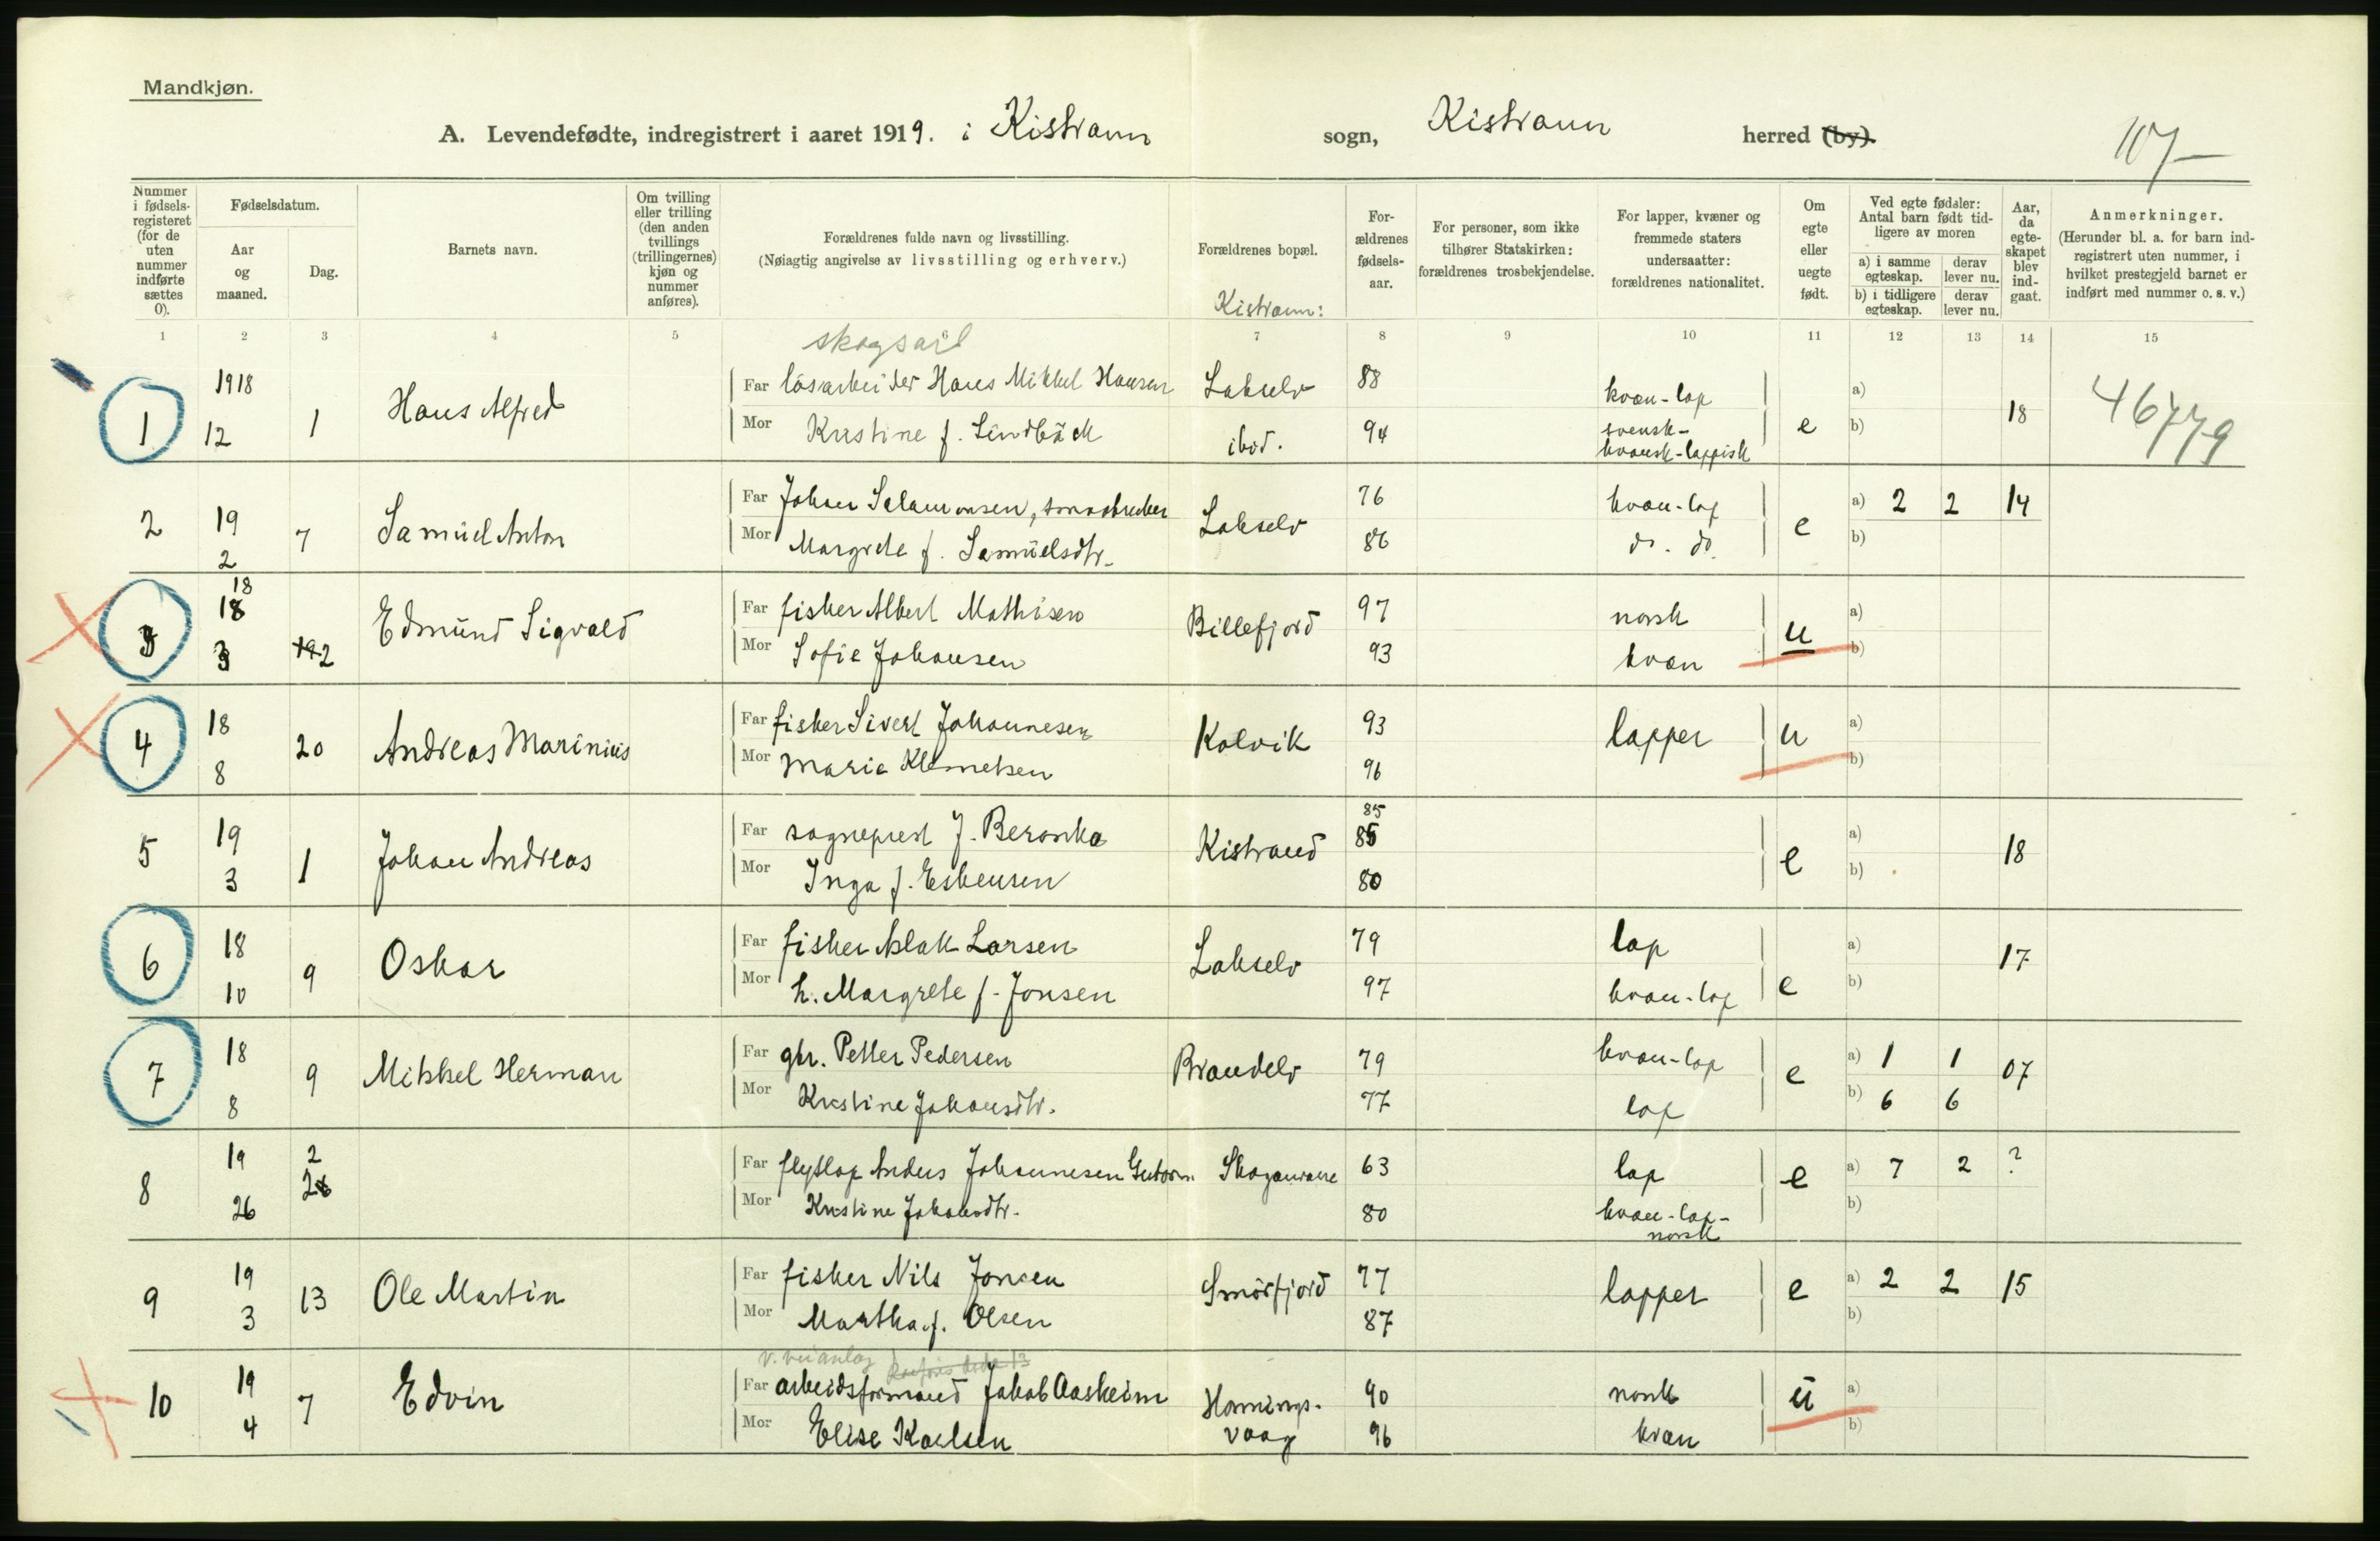 Mandkjøn.
A. Levendefødte, indregistrert i aaret 1919. i Kistrann sogn, Kistrann herred (by).
107
Nummer i fødselsregisteret (for de uten nummer indførte sættes 0).
Fødselsdatum.
Aar og maaned.
Dag.
Barnets navn.
Om tvilling eller trilling (den anden tvillings (trillingernes) kjøn og nummer anføres).
Forældrenes fulde navn og livsstilling.
(Nøiagtig angivelse av livsstilling og erhverv.)
Forældrenes bopæl.
Kistrann:
Forældrenes fødselsaar.
For personer, som ikke tilhører Statskirken: forældrenes trosbekjendelse.
For lapper, kvæner og fremmede staters undersaatter: forældrenes nationalitet.
Om egte eller uegte født.
Ved egte fødsler: Antal barn født tidligere av moren
a) i samme egteskap. derav lever nu.
b) i tidligere egteskap. derav lever nu.
Aar, da egteskapet blev indgaat.
Anmerkninger.
(Herunder bl. a. for barn indregistrert uten nummer, i hvilket prestegjeld barnet er indført med nummer o. s. v.)
1 2 3 4 5 6 7 8 9 10 11 12 13 14 15
skogsarb
1 1918 12 1 Hans Alfred
Far løsarbeider Hans Mikkel Hansen Lakselv 88 kvæn-lap
Mor Kristine f. Lindbäck ibid. 94 svensk-kvænsk-lappisk e a) b) 18
46779
2 19 2 7 Samuel Anton
Far Johan Salamonsen, smaabruker Lakselv 76 kvæn-lap
Mor Margrete f. Samuelsdtr. 86 do. do. e a) 2 2 14 b)
3 18 18 3 2 Edmund Sigvald
Far fisker Albert Mathisen Billefjord 97 norsk
Mor Sofie Johansen 93 kvæn u a) b)
4 18 8 20 Andreas Marinius
Far fisker Sivert Johannesen Kolvik 93 lapper
Mor Marie Klemetsen 96 u a) b)
5 19 3 1 Johan Andreas
Far sogneprest J. Beronka Kistrand 85 85
Mor Inga f. Eskensen 80 e a) b) 18
6 18 10 9 Oskar
Far fisker Aslak Larsen Lakselv 79 lap
Mor h. Margrete f. Jonsen 97 kvæn-lap e a) b) 17
7 18 8 9 Mikkel Herman
Far gbr. Petter Pedersen Brandelv 79 kvæn-lap
Mor Kristine Johansdtr. 77 lap e a) 1 1 b) 6 6 07
8 19 26 2
Far flytlap Anders Johannesen Guttorm 63 lap
Mor Kristine Johansdtr. 80 kvæn-lap-norsk e a) 7 2 ? b)
9 19 3 13 Ole Martin
Far fisker Nils Jonsen Smørfjord 77 lapper
Mor Martha f. Olsen 87 e a) 2 2 15 b)
v. veianlæg
10 19 4 7 Edvin
Far arbeidsformand Jakob Aasheim Honningsvaag 90 norsk
Mor Elise Karlsen 96 kvæn u a) b)